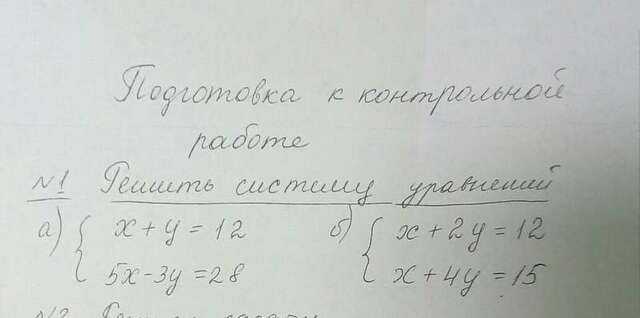 Подготовка к контрольной
работе
№1 Решить систему уравнений
а) { x + y = 12 б) { x + 2y = 12
5x - 3y = 28 x + 4y = 15
№2